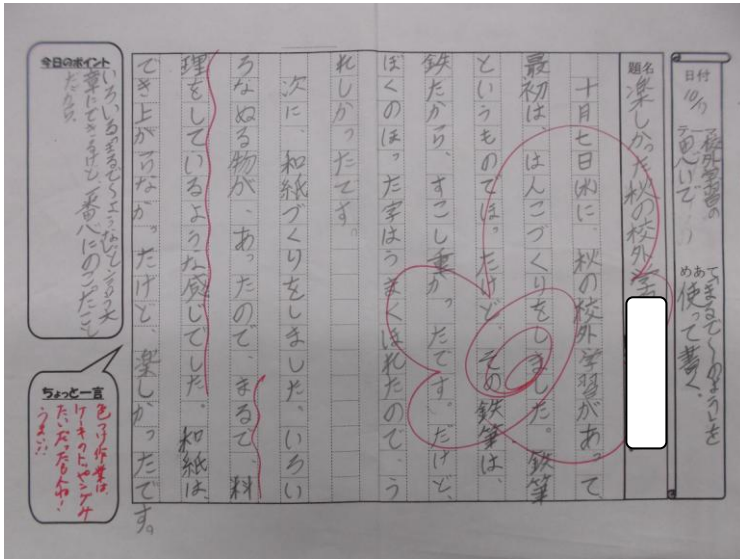 日付
10/7
校外学習の
テーマ
思い出
めあて
「まるで〜のよう」を
使って書く。
題名
楽しかった秋の校外学
十月七日㈬に、秋の校外学習があって
最初は、はんこづくりをしました。鉄筆
というものでほったけど、その鉄筆は、
鉄だから、すこし重かったです。だけど、
ぼくのほった字はうまくほれたので、う
れしかったです。
次に、和紙づくりをしました。いろい
ろなぬる物が、あったので、まるで、料
理をしているような感じでした。和紙は、
でき上がらなかったけど、楽しかったです。
今日のポイント
ちょっと一言
色つけ作業は、
ケーキのトッピングみ
たいだったもんね!
うまい!!